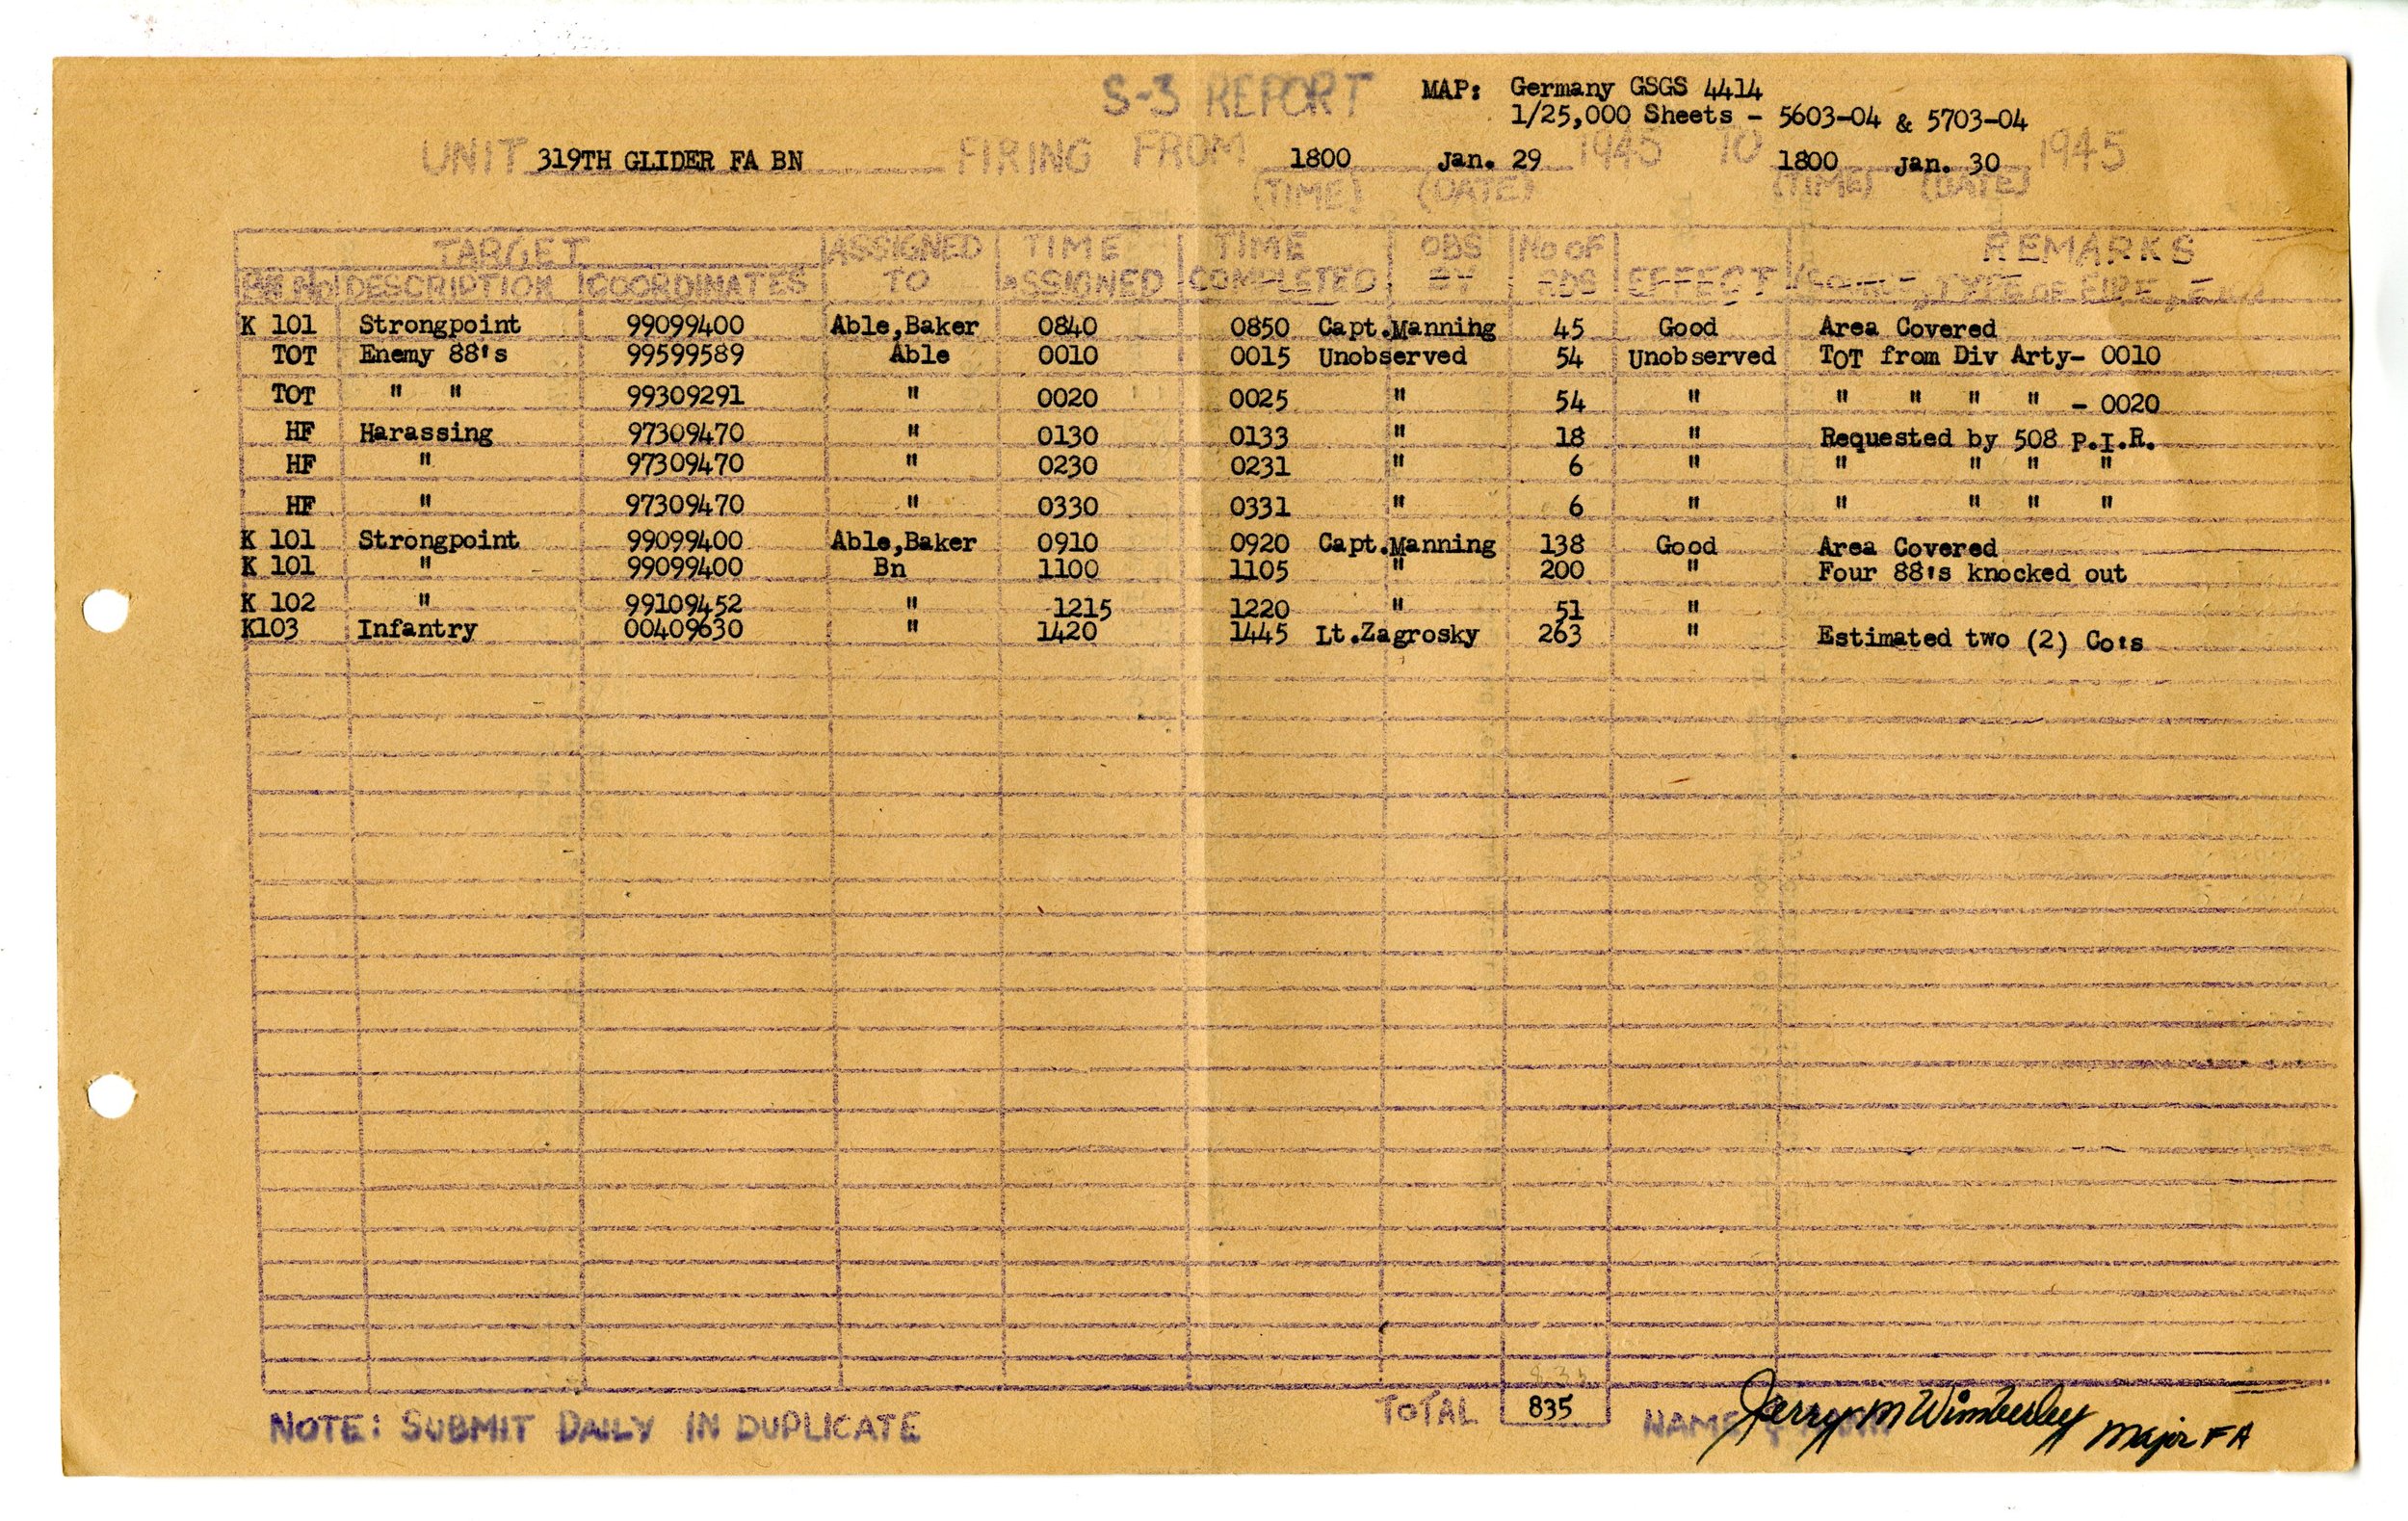 S-3 REPORT MAP: Germany GSGS 4414
1/25,000 Sheets - 5603-04 & 5703-04
UNIT 319TH GLIDER FA BN FIRING FROM 1800 Jan. 29 1945 TO 1800 Jan. 30 1945
(TIME) (DATE) (TIME) (DATE)
TARGET ASSIGNED TIME TIME OBS No OF REMARKS
No DESCRIPTION COORDINATES TO ASSIGNED COMPLETED BY RDS EFFECT (SOURCE, TYPE OF FIRE,
K 101 Strongpoint 99099400 Able,Baker 0840 0850 Capt.Manning 45 Good Area Covered
TOT Enemy 88's 99599589 Able 0010 0015 Unobserved 54 Unobserved TOT from Div Arty- 0010
TOT " " 99309291 " 0020 0025 " 54 " " " " " - 0020
HF Harassing 97309470 " 0130 0133 " 18 " Requested by 508 P.I.R.
HF " 97309470 " 0230 0231 " 6 " " " " "
HF " 97309470 " 0330 0331 " 6 " " " " "
K 101 Strongpoint 99099400 Able,Baker 0910 0920 Capt.Manning 138 Good Area Covered
K 101 " 99099400 Bn 1100 1105 " 200 " Four 88's knocked out
K 102 " 99109452 " 1215 1220 " 51 "
K103 Infantry 00409630 " 1420 1445 Lt.Zagrosky 263 " Estimated two (2) Co's
NOTE: SUBMIT DAILY IN DUPLICATE TOTAL 835 NAME Jerry M Wimberley Major FA